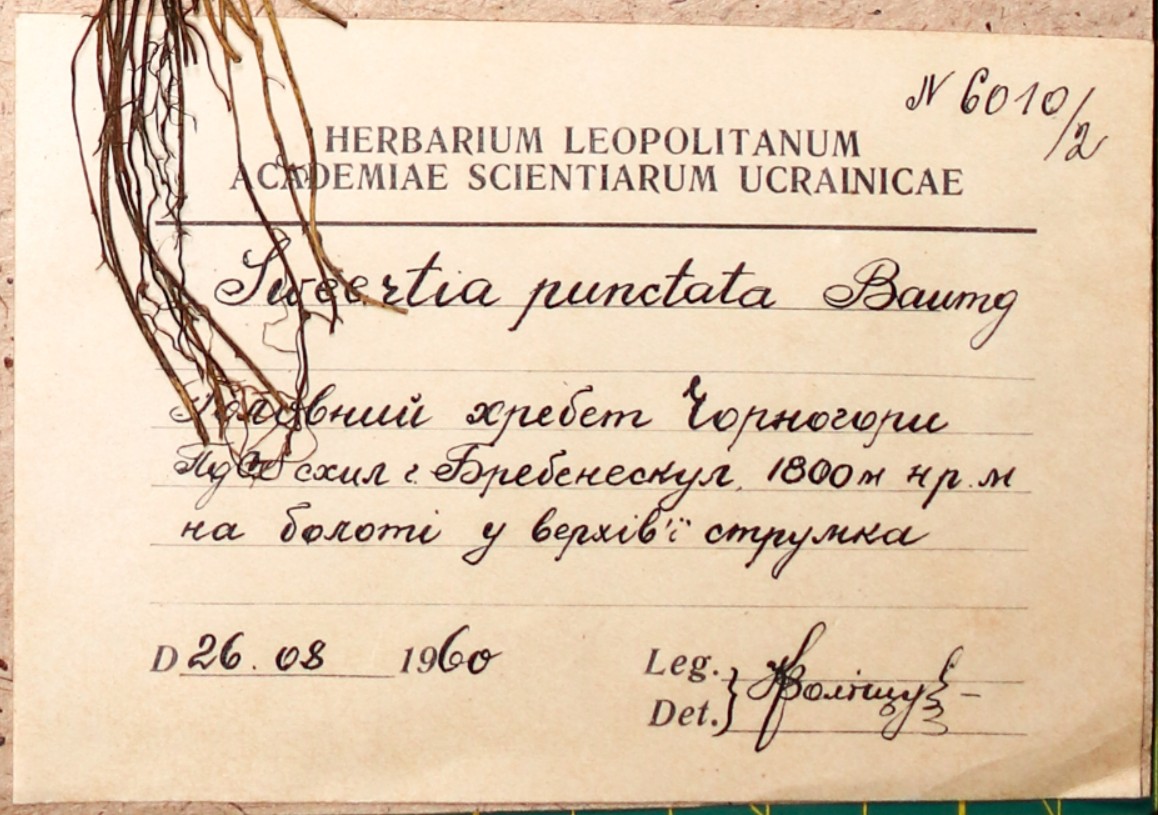 N 6010/2
HERBARIUM LEOPOLITANUM
ACADEMIAE SCIENTIARUM UCRAINICAE
Sweertia punctata Baumg
Головний хребет Чорногори
схил г. Бребенескул, 1800 м н р. м
на болоті у верхів'ї струмка
D 26. 08 1960
Leg.
Det. }